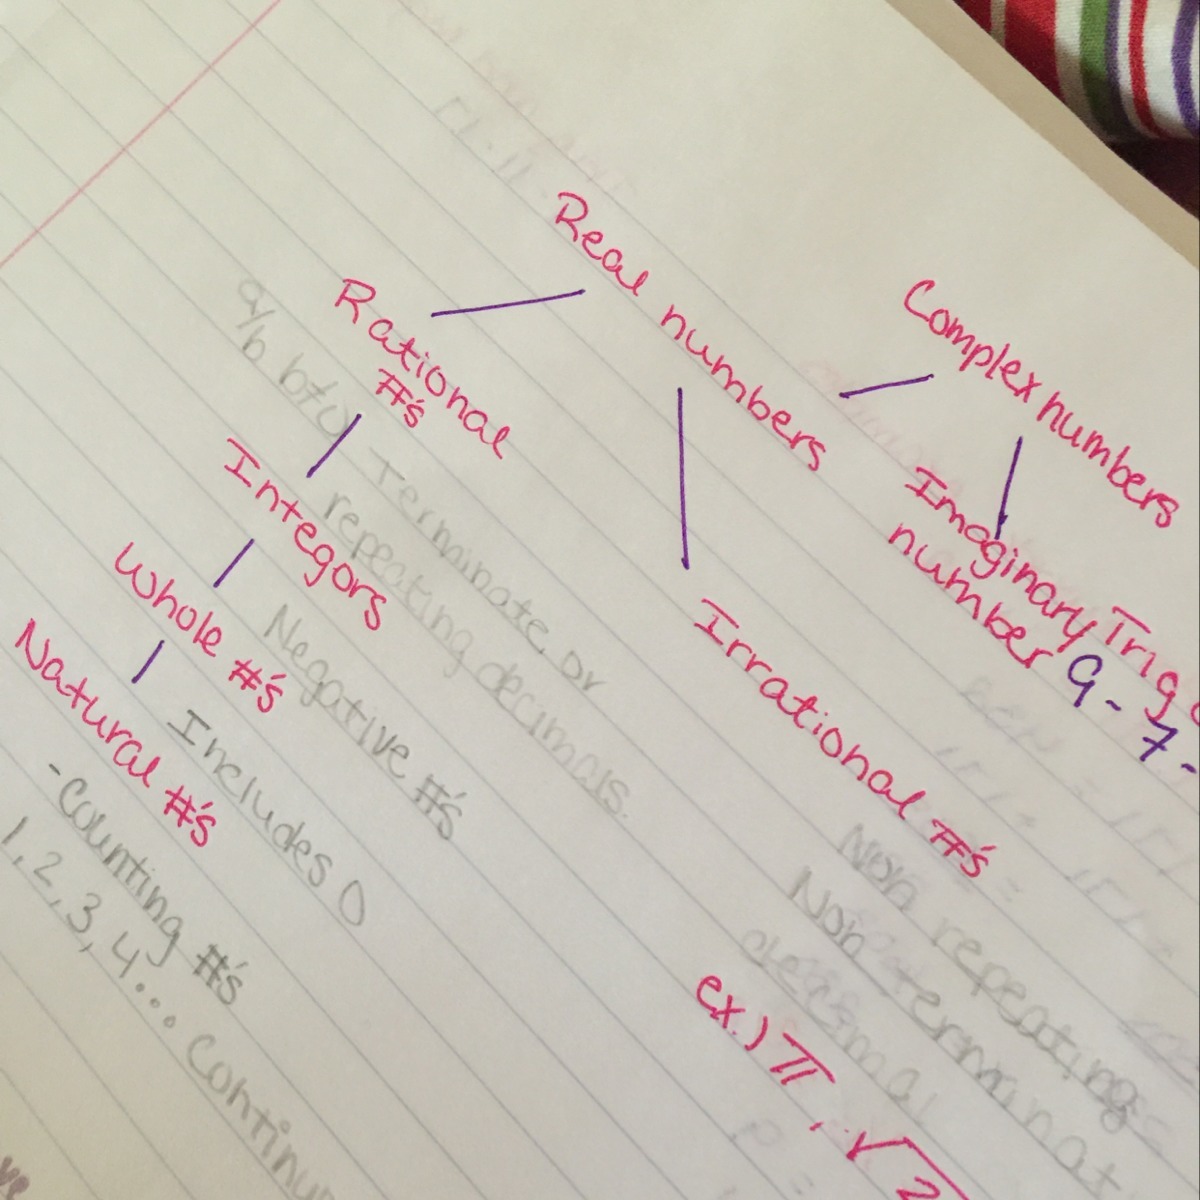 Complex numbers
Real numbers
Imaginary
number
Trig
9-7-
Rational
#'s
a/b b≠0
Terminate or
repeating decimals.
Integors
Negative #'s
Whole #'s
Includes 0
Natural #'s
-Counting #'s
1, 2, 3, 4... Continu
Irrational #'s
Non repeating
Non terminat
decimal
ex.) π, √2